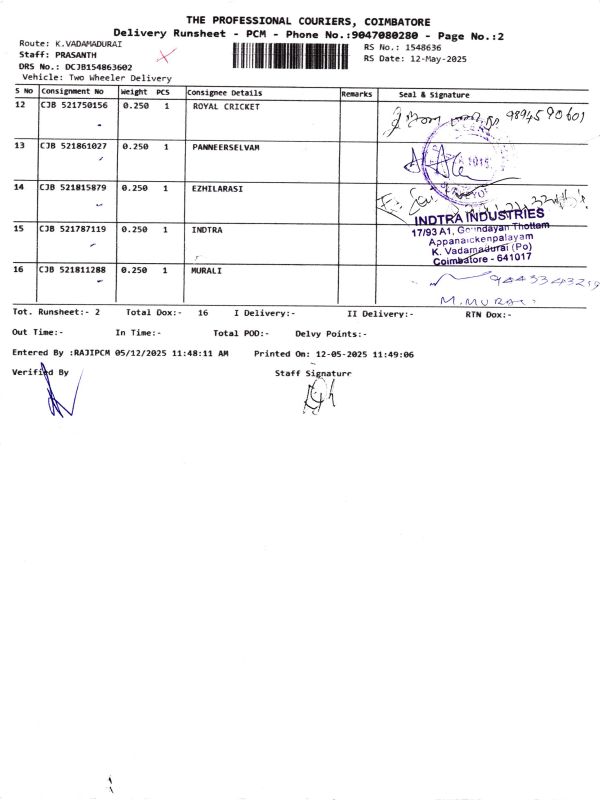 THE PROFESSIONAL COURIERS, COIMBATORE
Delivery Runsheet - PCM - Phone No.:9047080280 - Page No.:2
Route: K.VADAMADURAI
Staff: PRASANTH
DRS No.: DCJB154863602
Vehicle: Two Wheeler Delivery
RS No.: 1548636
RS Date: 12-May-2025
S No Consignment No Weight PCS Consignee Details Remarks Seal & Signature
12 CJB 521750156 0.250 1 ROYAL CRICKET 9894590601
13 CJB 521861027 0.250 1 PANNEERSELVAM
14 CJB 521815879 0.250 1 EZHILARASI
15 CJB 521787119 0.250 1 INDTRA
INDTRA INDUSTRIES
17/93 A1, Goundayan Thottam
Appanaickenpalayam
K. Vadamadurai (Po)
Coimbatore - 641017
16 CJB 521811288 0.250 1 MURALI
M.MURALI
Tot. Runsheet:- 2 Total Dox:- 16 I Delivery:- II Delivery:- RTN Dox:-
Out Time:- In Time:- Total POD:- Delvy Points:-
Entered By :RAJIPCM 05/12/2025 11:48:11 AM Printed On: 12-05-2025 11:49:06
Verified By Staff Signaturr